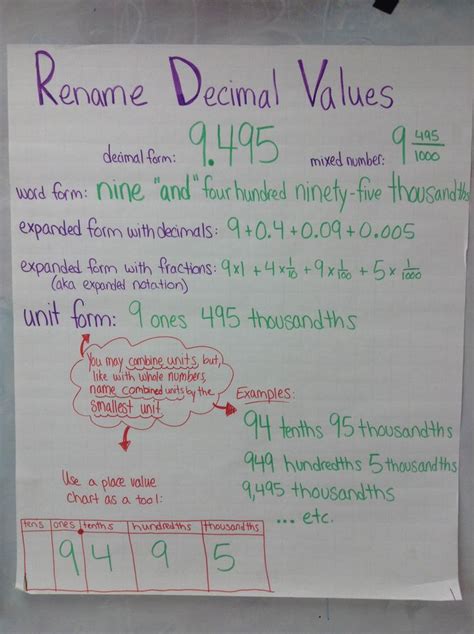 Rename Decimal Values
decimal form: 9.495 mixed number: 9 495/1000
word form: nine "and" four hundred ninety-five thousandths
expanded form with decimals: 9+0.4+0.09+0.005
expanded form with fractions: 9×1 + 4×1/10 + 9×1/100 + 5×1/1000
(aka expanded notation)
unit form: 9 ones 495 thousandths
You may combine units, but,
like with whole numbers,
name combined units by the
smallest unit.
Examples:
94 tenths 95 thousandths
949 hundredths 5 thousandths
9,495 thousandths
... etc.
Use a place value
chart as a tool:
tens ones tenths hundredths thousandths
9 4 9 5